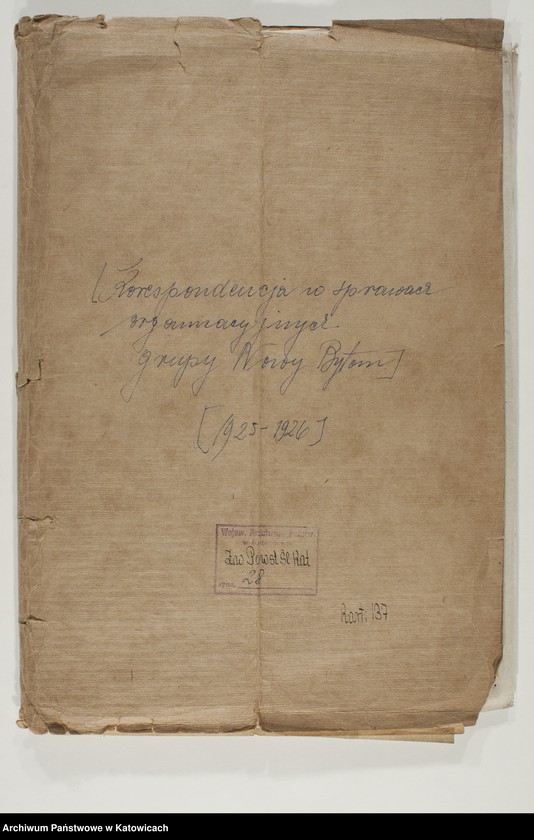 [Korespondencja w sprawach
organizacyjnych
grupy Nowy Bytom]
[1925-1926]
Wojew. Archiwum Państw.
w Katowicach
Zw Powst Śl Kat
28
Kart: 137
Archiwum Państwowe w Katowicach